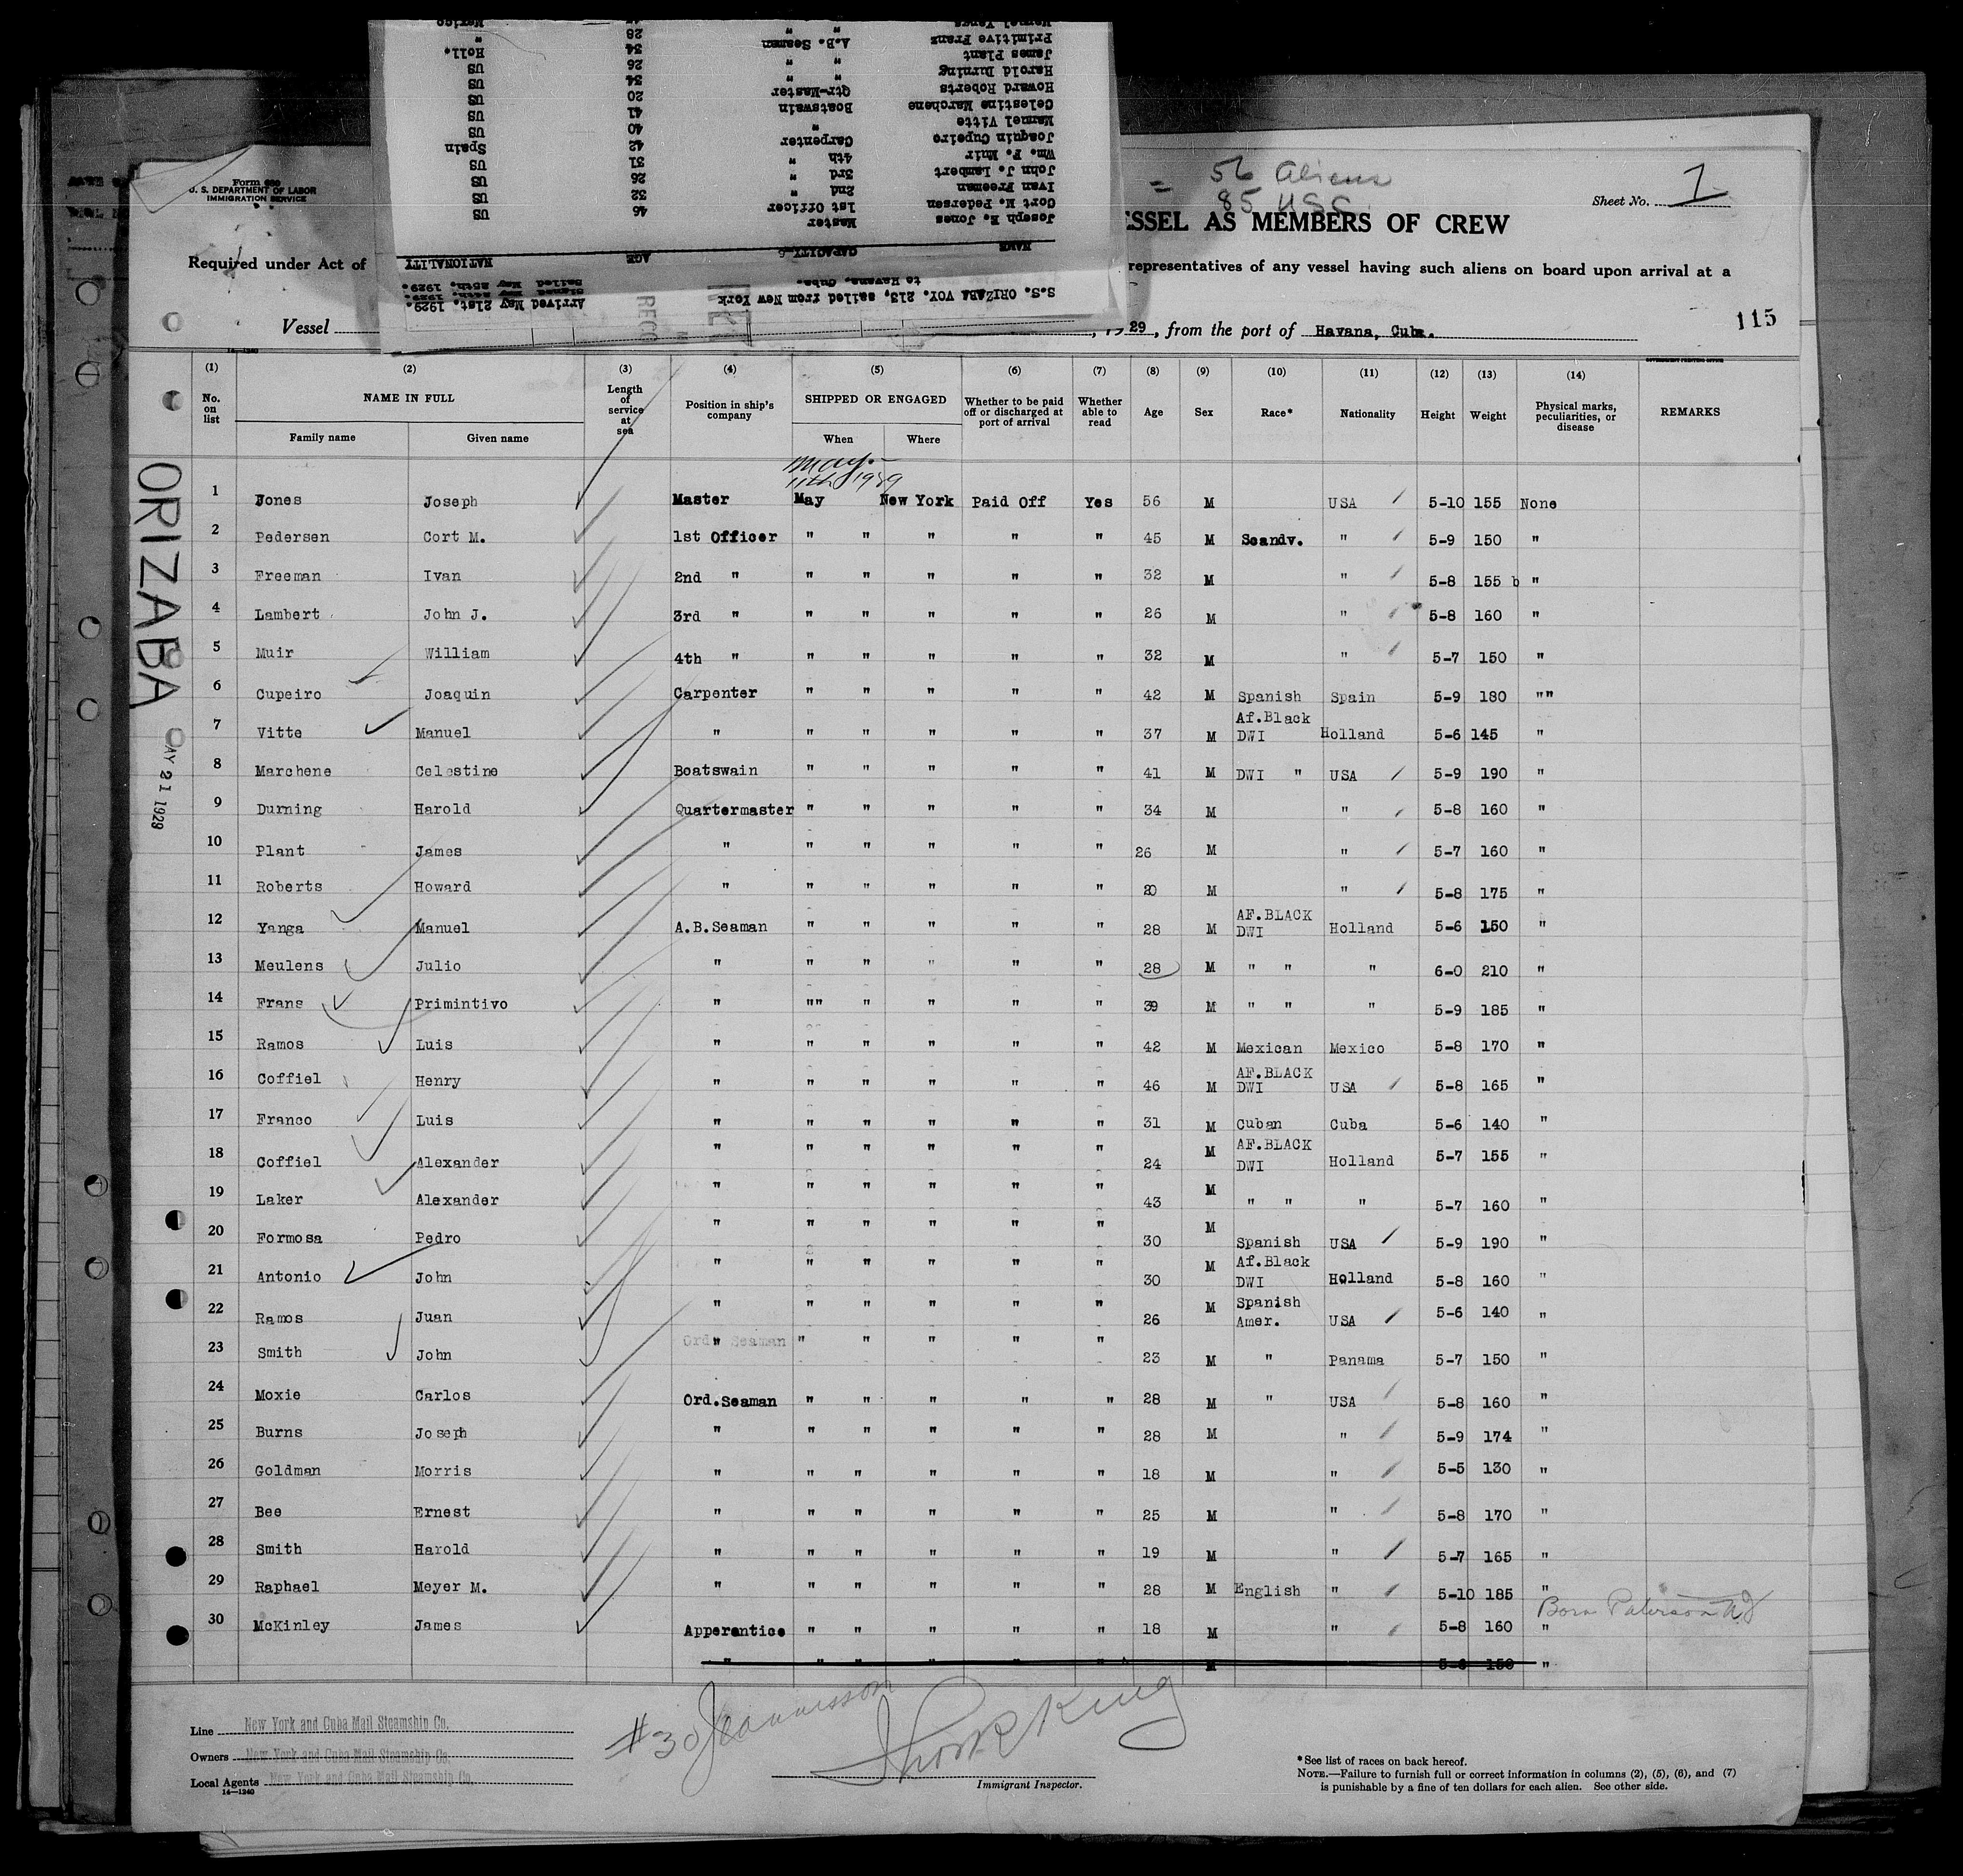 Mexico
Manuel Yanga " 28 "
Primitive Franz A.B. Seaman 34 Holl.
James Plant " " 26 US
Harold Durning " " 34 US
Howard Roberts Qtr-Master 20 US
Celestine Marchene Boatswain 41 US
Manuel Vitte " 40 US
Joaquin Cupeiro Carpenter 42 Spain
Wm. F. Muir 4th " 31 US
John J. Lambert 3rd " 26 US
Ivan Freeman 2nd " 32 US
Cort M. Pedersen 1st Officer 46 US
Joseph E. Jones Master
NAME CAPACITY AGE NATIONALITY
S.S. ORIZABA VOY. 213, sailed from New York
to Havana, Cuba.
Arrived May 21st. 1929.
Sailed May 25th. 1929.
Form 680
U. S. DEPARTMENT OF LABOR
IMMIGRATION SERVICE
= 56 Aliens
85 USC
Sheet No. 1
ESSEL AS MEMBERS OF CREW
Required under Act of
representatives of any vessel having such aliens on board upon arrival at a
Vessel
, 1929, from the port of Havana, Cuba.
115
14-1240
GOVERNMENT PRINTING OFFICE
(1) (2) (3) (4) (5) (6) (7) (8) (9) (10) (11) (12) (13) (14)
No. on list NAME IN FULL Length of service at sea Position in ship's company SHIPPED OR ENGAGED Whether to be paid off or discharged at port of arrival Whether able to read Age Sex Race* Nationality Height Weight Physical marks, peculiarities, or disease REMARKS
Family name Given name When Where
May-
11th 1929
1 Jones Joseph Master May New York Paid Off Yes 56 M USA 5-10 155 None
2 Pedersen Cort M. 1st Officer " " " " " 45 M Scandv. " 5-9 150 "
3 Freeman Ivan 2nd " " " " " " 32 M " 5-8 155 b "
4 Lambert John J. 3rd " " " " " " 26 M " 5-8 160 "
5 Muir William 4th " " " " " " 32 M " 5-7 150 "
6 Cupeiro Joaquin Carpenter " " " " " 42 M Spanish Spain 5-9 180 ""
7 Vitte Manuel " " " " " " 37 M Af.Black DWI Holland 5-6 145 "
8 Marchene Celestine Boatswain " " " " " 41 M DWI " USA 5-9 190 "
9 Durning Harold Quartermaster " " " " " 34 M " 5-8 160 "
10 Plant James " " " " " " 26 M " 5-7 160 "
11 Roberts Howard " " " " " " 20 M " 5-8 175 "
12 Yanga Manuel A.B.Seaman " " " " " 28 M AF.BLACK DWI Holland 5-6 150 "
13 Meulens Julio " " " " " " 28 M " " " 6-0 210 "
14 Frans Primintivo " "" " " " " 39 M " " " 5-9 185 "
15 Ramos Luis " " " " " " 42 M Mexican Mexico 5-8 170 "
16 Coffiel Henry " " " " " " 46 M AF.BLACK DWI USA 5-8 165 "
17 Franco Luis " " " " " " 31 M Cuban Cuba 5-6 140 "
18 Coffiel Alexander " " " " " " 24 M AF.BLACK DWI Holland 5-7 155 "
19 Laker Alexander " " " " " " 43 M " " " 5-7 160 "
20 Formosa Pedro " " " " " " 30 M Spanish USA 5-9 190 "
21 Antonio John " " " " " " 30 M Af.Black DWI Holland 5-8 160 "
22 Ramos Juan " " " " " " 26 M Spanish Amer. USA 5-6 140 "
23 Smith John " " " " " " 23 M " Panama 5-7 150 "
24 Moxie Carlos Ord.Seaman " " " " " 28 M " USA 5-8 160 "
25 Burns Joseph " " " " " " 28 M " 5-9 174 "
26 Goldman Morris " " " " " " 18 M " 5-5 130 "
27 Bee Ernest " " " " " " 25 M " 5-8 170 "
28 Smith Harold " " " " " " 19 M " 5-7 165 "
29 Raphael Meyer M. " " " " " " 28 M English " 5-10 185 "
Born Paterson NJ
30 McKinley James Apperentice " " " " " 18 M " 5-8 160 "
" " " " " " M 5-8 150 "
ORIZABA
MAY 21 1929
Line New York and Cuba Mail Steamship Co.
Owners New York and Cuba Mail Steamship Co.
Local Agents New York and Cuba Mail Steamship Co.
14-1240
#30
Immigrant Inspector.
*See list of races on back hereof.
NOTE.—Failure to furnish full or correct information in columns (2), (5), (6), and (7)
is punishable by a fine of ten dollars for each alien. See other side.